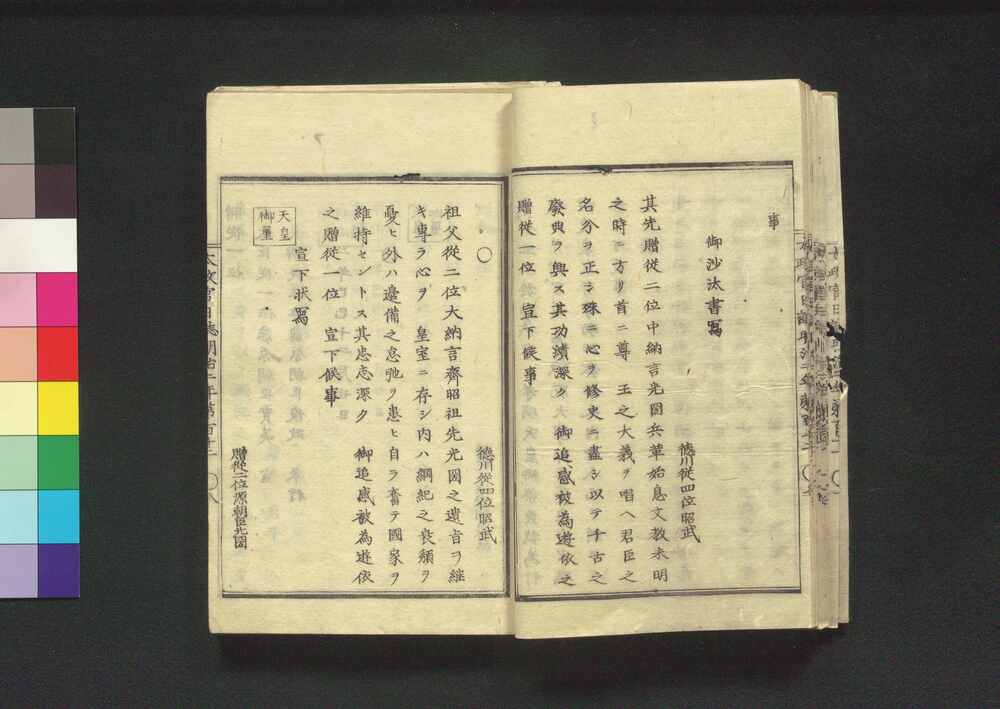 事
御沙汰書寫
德川從四位昭武
其先贈從二位中納言光圀兵革始息文教未明
之時ニ方リ首ニ尊 王之大義ヲ唱ヘ君臣之
名分ヲ正シ殊ニ心ヲ修史ニ盡シ以テ千古之
廢典ヲ興ス其功績深ク 御追感被為遊依之
贈從一位 宣下候事
○
德川從四位昭武
祖父從二位大納言齊昭祖先光圀之遺旨ヲ繼
キ專ラ心ヲ 皇室ニ存シ内ハ綱紀之衰頽ヲ
憂ヒ外ハ邊備之怠弛ヲ患ヒ自ラ奮テ國家ヲ
維持セントス其忠志深ク 御追感被為遊依
之贈從一位 宣下候事
宣下状寫
天皇
御璽
贈從二位源朝臣光圀
太政官日誌明治二年第百十二 ○八